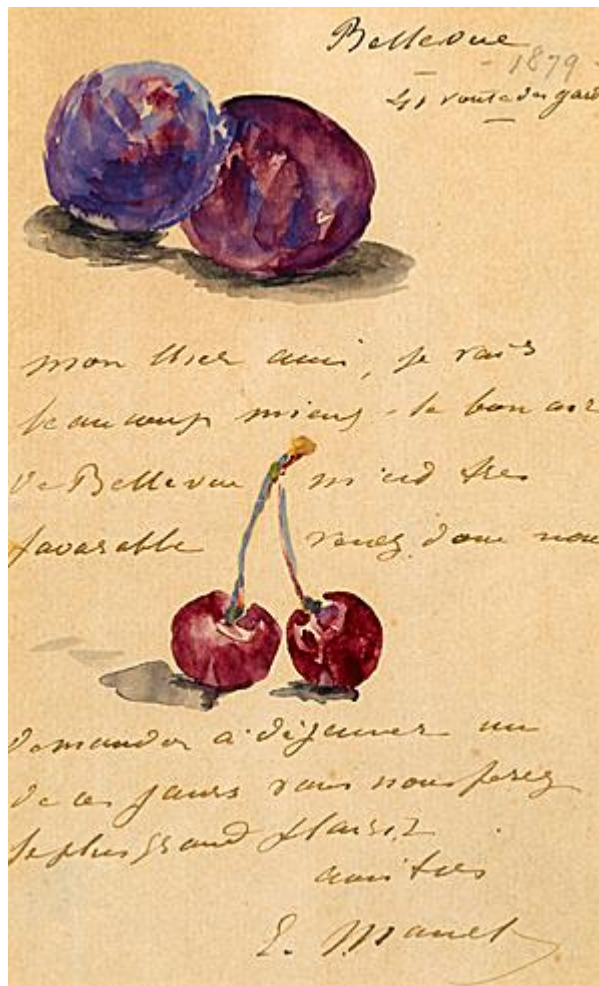 Bellevue
- 1879 -
41 route des gard
mon cher ami, je vais
beaucoup mieux - le bon air
de Bellevue m'est très
favorable venez donc nous
demander à déjeuner un
de ces jours vous nous ferez
le plus grand plaisir
amitiés
E. Manet